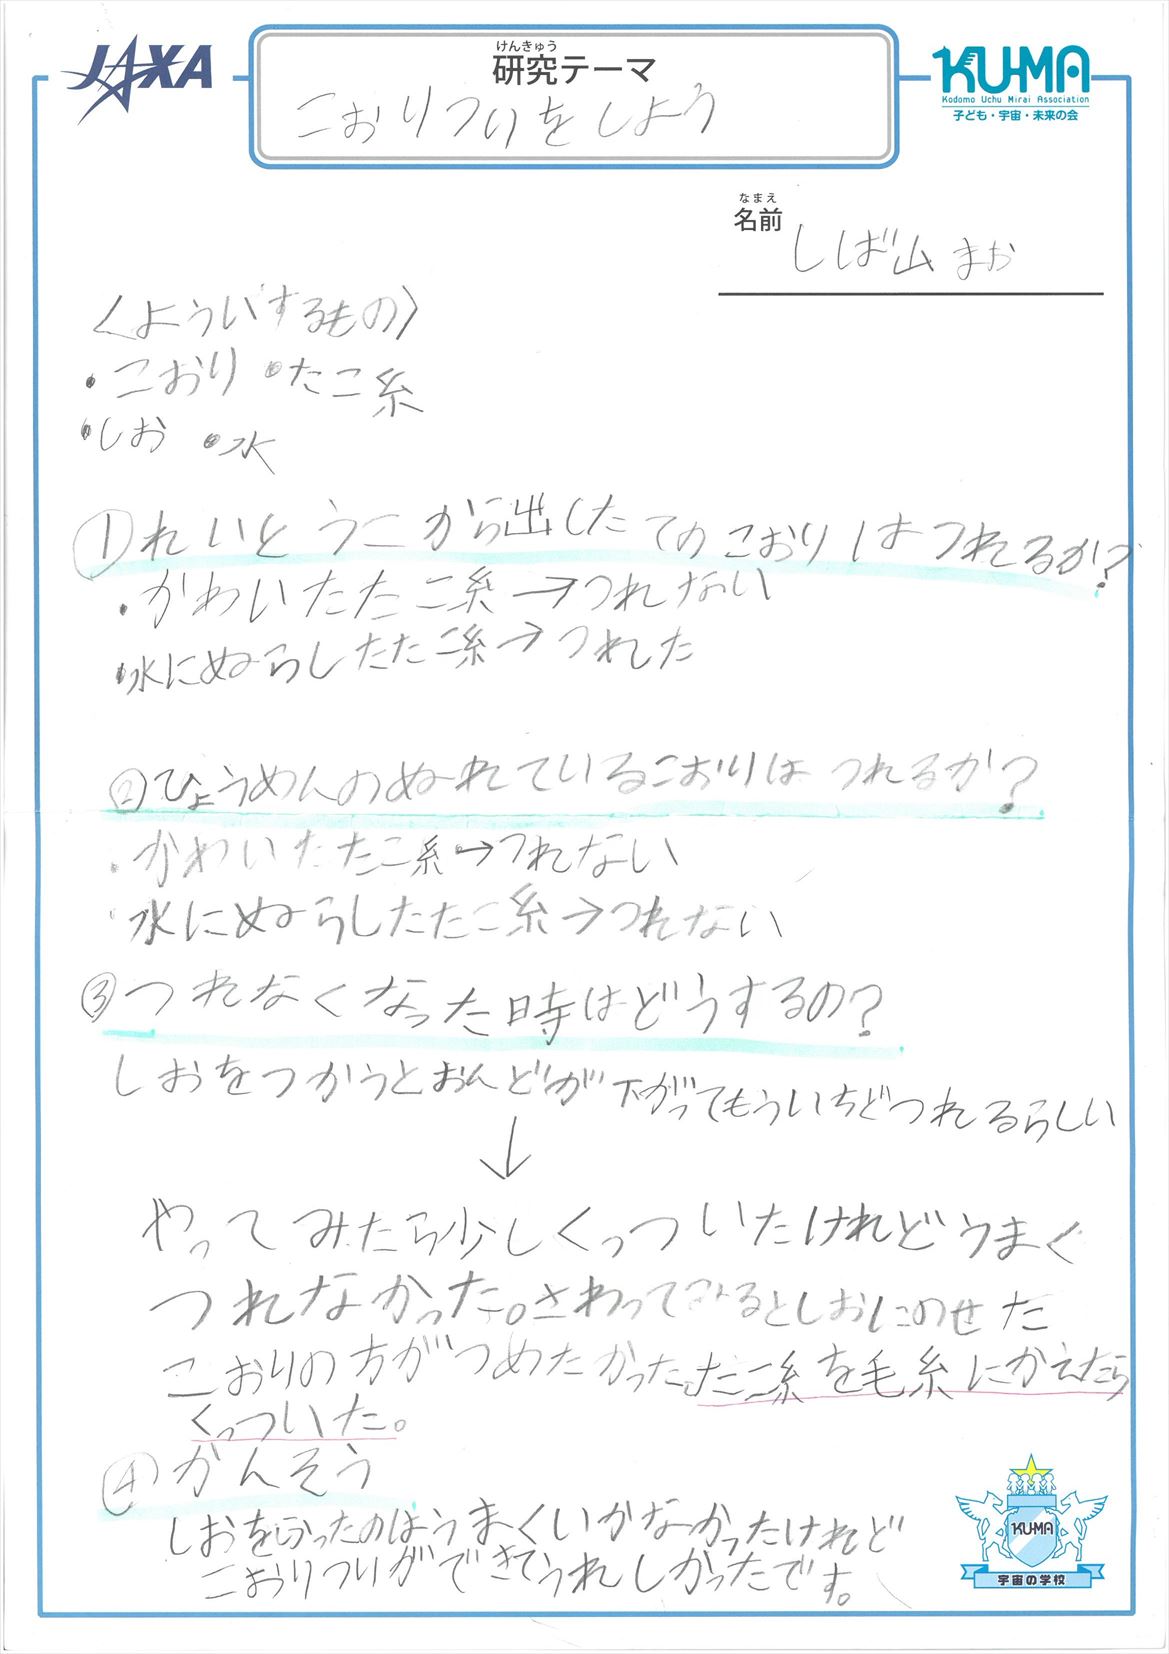 JAXA
けんきゅう
研究テーマ
こおりつりをしよう
KU-MA
Kodomo Uchu Mirai Association
子ども・宇宙・未来の会
なまえ
名前
しば山 まお
〈よういするもの〉
・こおり ・たこ糸
・しお ・水
① れいとうこから出したてのこおりはつれるか?
・かわいたたこ糸→つれない
・水にぬらしたたこ糸→つれた
② ひょうめんのぬれているこおりは つれるか?
・かわいたたこ糸→つれない
・水にぬらしたたこ糸→つれない
③ つれなくなった時はどうするの?
しおをつかうとおんどが下がってもういちどつれるらしい
↓
やってみたら少しくっついたけれどうまく
つれなかった。さわってみるとしおにのせた
こおりの方がつめたかった。たこ糸を毛糸にかえたら
くっついた。
④ かんそう
しおをつかったのはうまくいかなかったけれど
こおりつりができてうれしかったです。
KU-MA
宇宙の学校